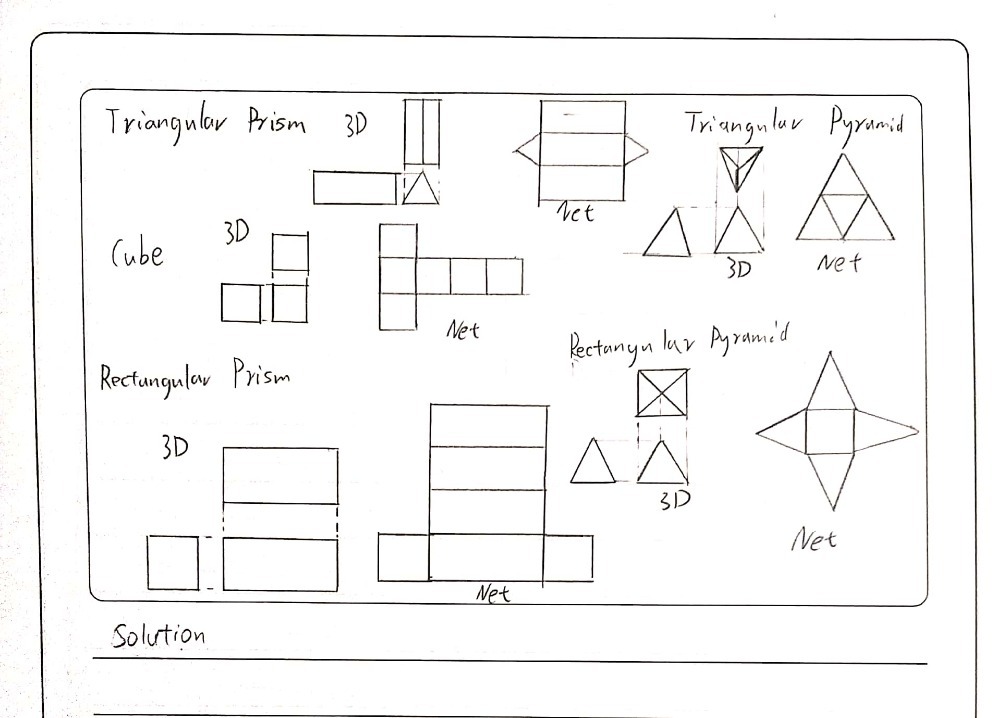 Triangular Prism 3D
Net
Triangular Pyramid
3D
Net
Cube
3D
Net
Rectangular Pyramid
3D
Net
Rectangular Prism
3D
Net
Solution